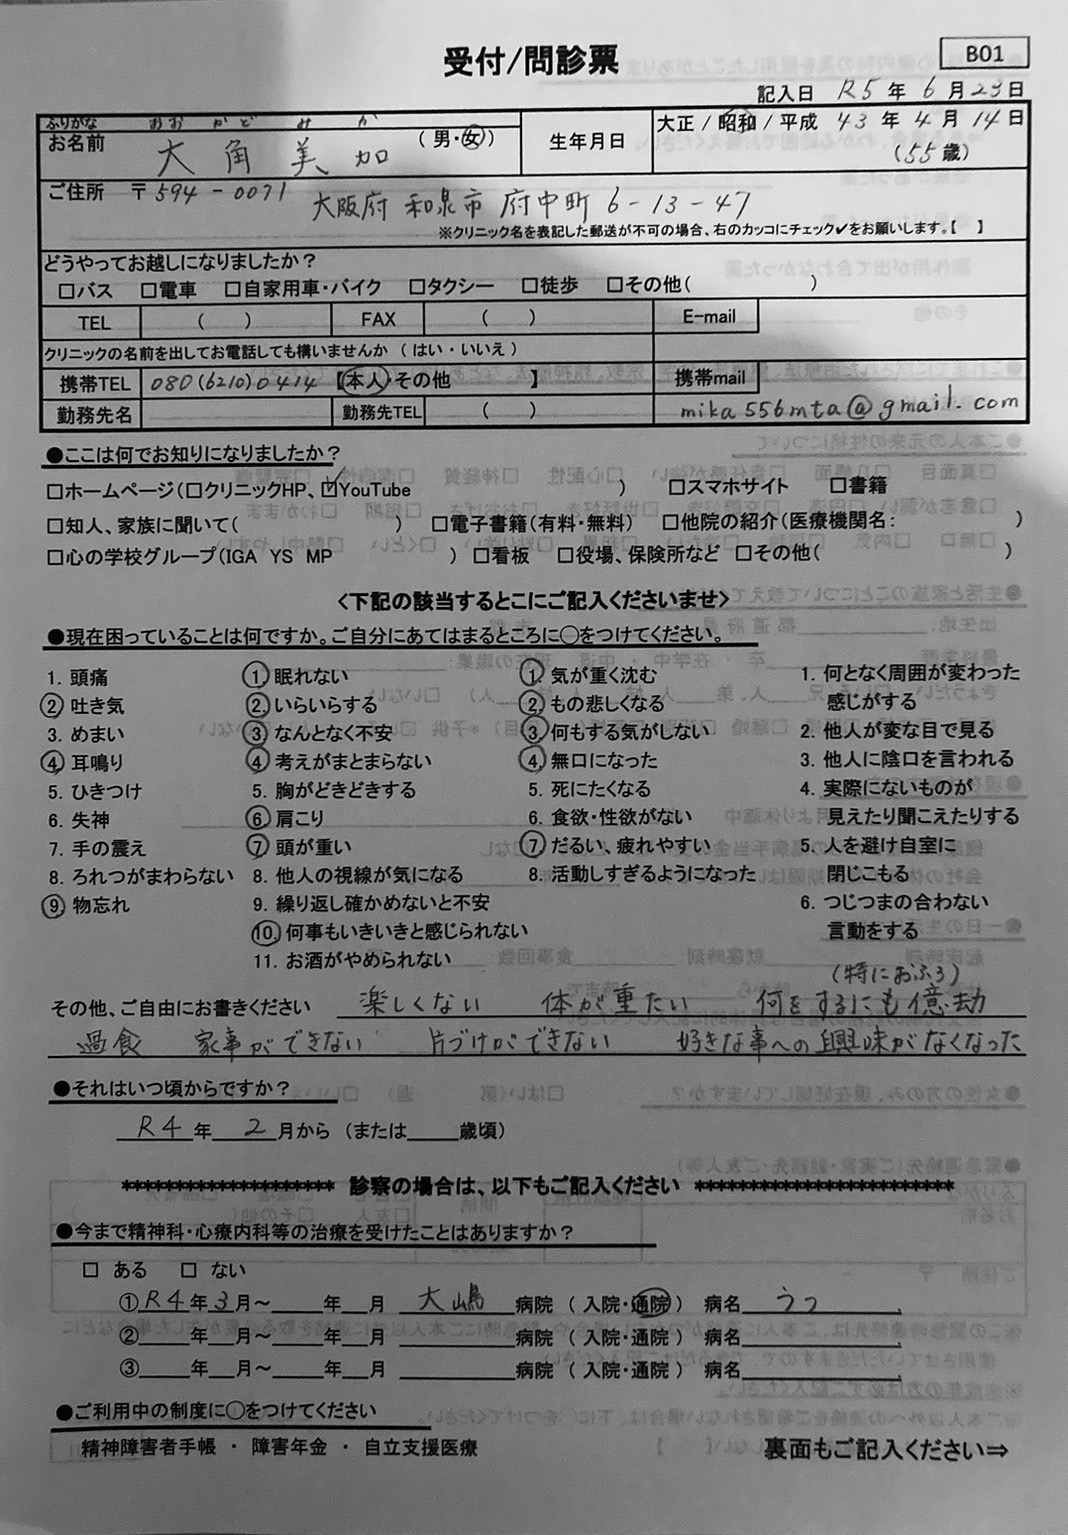 受付/問診票
B01
記入日 R5 年 6 月 23 日
ふりがな おおかど みか
お名前 大角 美加 (男・女)
生年月日 大正 / 昭和 / 平成 43 年 4 月 14 日
(55 歳)
ご住所 〒594-0071 大阪府 和泉市 府中町 6-13-47
※クリニック名を表記した郵送が不可の場合、右のカッコにチェック✔をお願いします。【 】
どうやってお越しになりましたか?
□バス □電車 □自家用車・バイク □タクシー □徒歩 □その他( )
TEL ( ) FAX ( ) E-mail
クリニックの名前を出してお電話しても構いませんか (はい・いいえ)
携帯TEL 080(6210)0414 【本人・その他 】 携帯mail
勤務先名 勤務先TEL ( ) mika556mta@gmail.com
●ここは何でお知りになりましたか?
□ホームページ(□クリニックHP、☑YouTube ) □スマホサイト □書籍
□知人、家族に聞いて( ) □電子書籍(有料・無料) □他院の紹介(医療機関名: )
□心の学校グループ(IGA YS MP ) □看板 □役場、保険所など □その他( )
<下記の該当するとこにご記入くださいませ>
●現在困っていることは何ですか。ご自分にあてはまるところに○をつけてください。
1. 頭痛 ① 眠れない ① 気が重く沈む 1. 何となく周囲が変わった
② 吐き気 ② いらいらする ② もの悲しくなる 感じがする
3. めまい ③ なんとなく不安 ③ 何もする気がしない 2. 他人が変な目で見る
④ 耳鳴り ④ 考えがまとまらない ④ 無口になった 3. 他人に陰口を言われる
5. ひきつけ 5. 胸がどきどきする 5. 死にたくなる 4. 実際にないものが
6. 失神 ⑥ 肩こり 6. 食欲・性欲がない 見えたり聞こえたりする
7. 手の震え ⑦ 頭が重い ⑦ だるい、疲れやすい 5. 人を避け自室に
8. ろれつがまわらない 8. 他人の視線が気になる 8. 活動しすぎるようになった 閉じこもる
⑨ 物忘れ 9. 繰り返し確かめないと不安 6. つじつまの合わない
⑩ 何事もいきいきと感じられない 言動をする
11. お酒がやめられない
(特におふろ)
その他、ご自由にお書きください 楽しくない 体が重たい 何をするにも億劫
過食 家事ができない 片づけができない 好きな事への興味がなくなった
●それはいつ頃からですか?
R4 年 2 月から (または 歳頃)
******************** 診察の場合は、以下もご記入ください ************************
●今まで精神科・心療内科等の治療を受けたことはありますか?
□ ある □ ない
① R4 年 3 月~ 年 月 大嶋 病院 (入院・通院) 病名 うつ
② 年 月~ 年 月 病院 (入院・通院) 病名
③ 年 月~ 年 月 病院 (入院・通院) 病名
●ご利用中の制度に○をつけてください
精神障害者手帳 ・ 障害年金 ・ 自立支援医療
裏面もご記入ください⇒